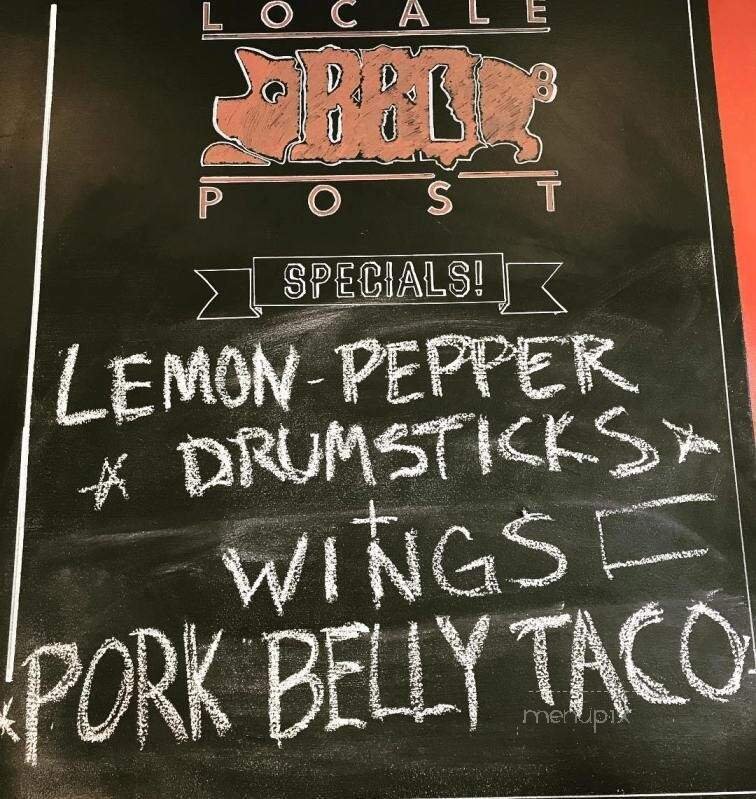 LOCALE
BBQ
POST
SPECIALS!
LEMON-PEPPER
DRUMSTICKS
+
WINGS
PORK BELLY TACO
menupix